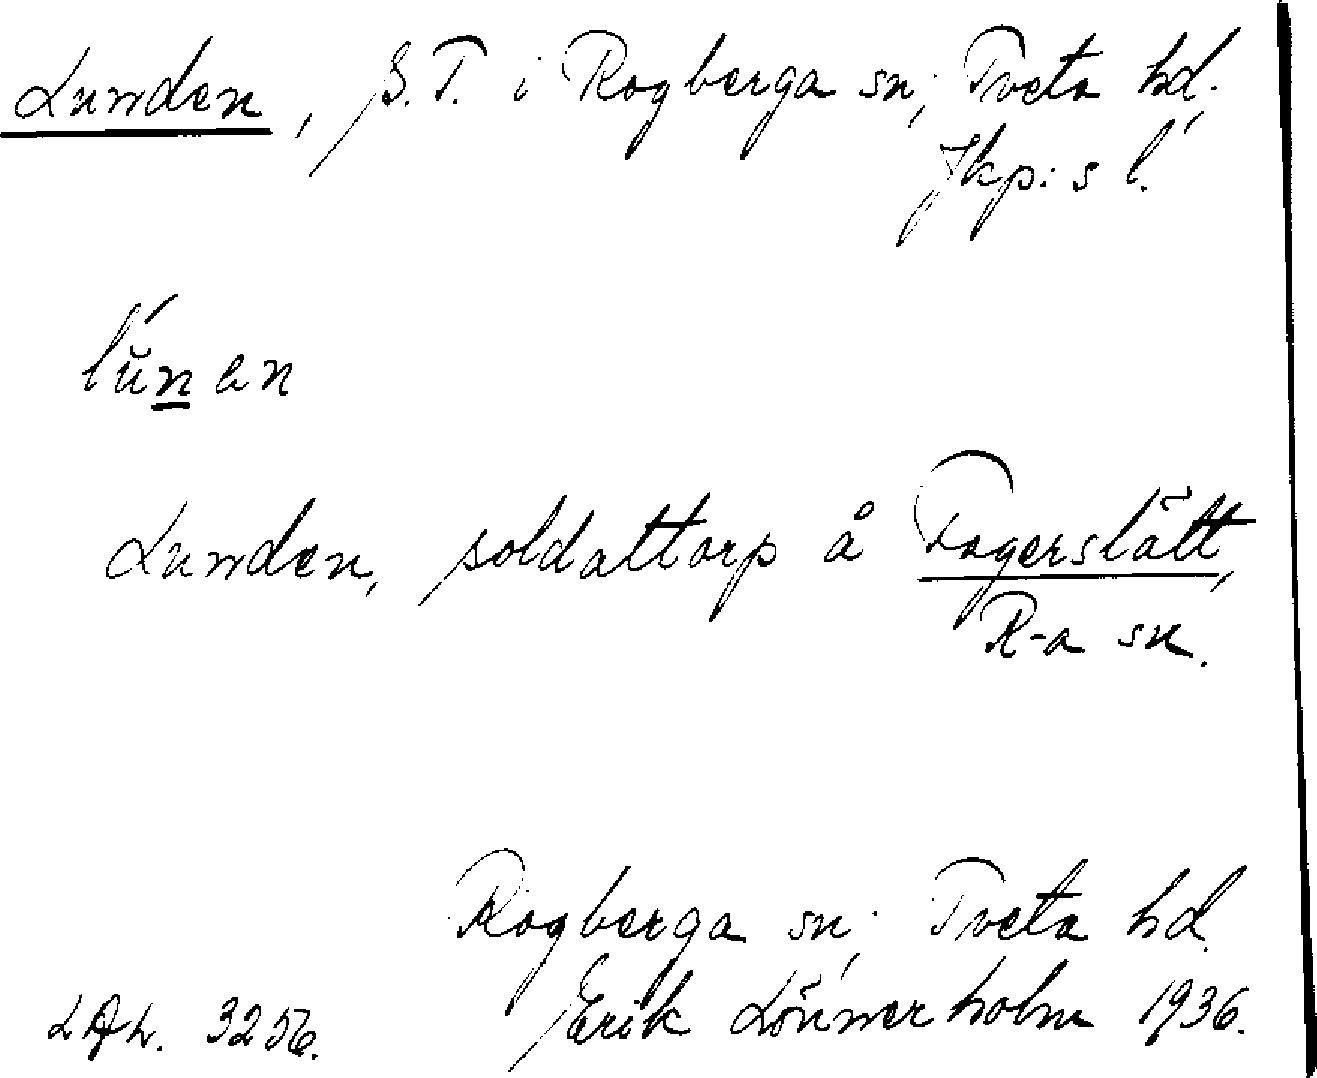 Lunden, S.T. i Rogberga sn; Tveta hd.
Jkp:s l.
lún an
Lunden, soldattorp å Fagerslätt,
R-a sn.
Rogberga sn; Tveta hd.
LAL. 3256. Erik Lönnerholm 1936.